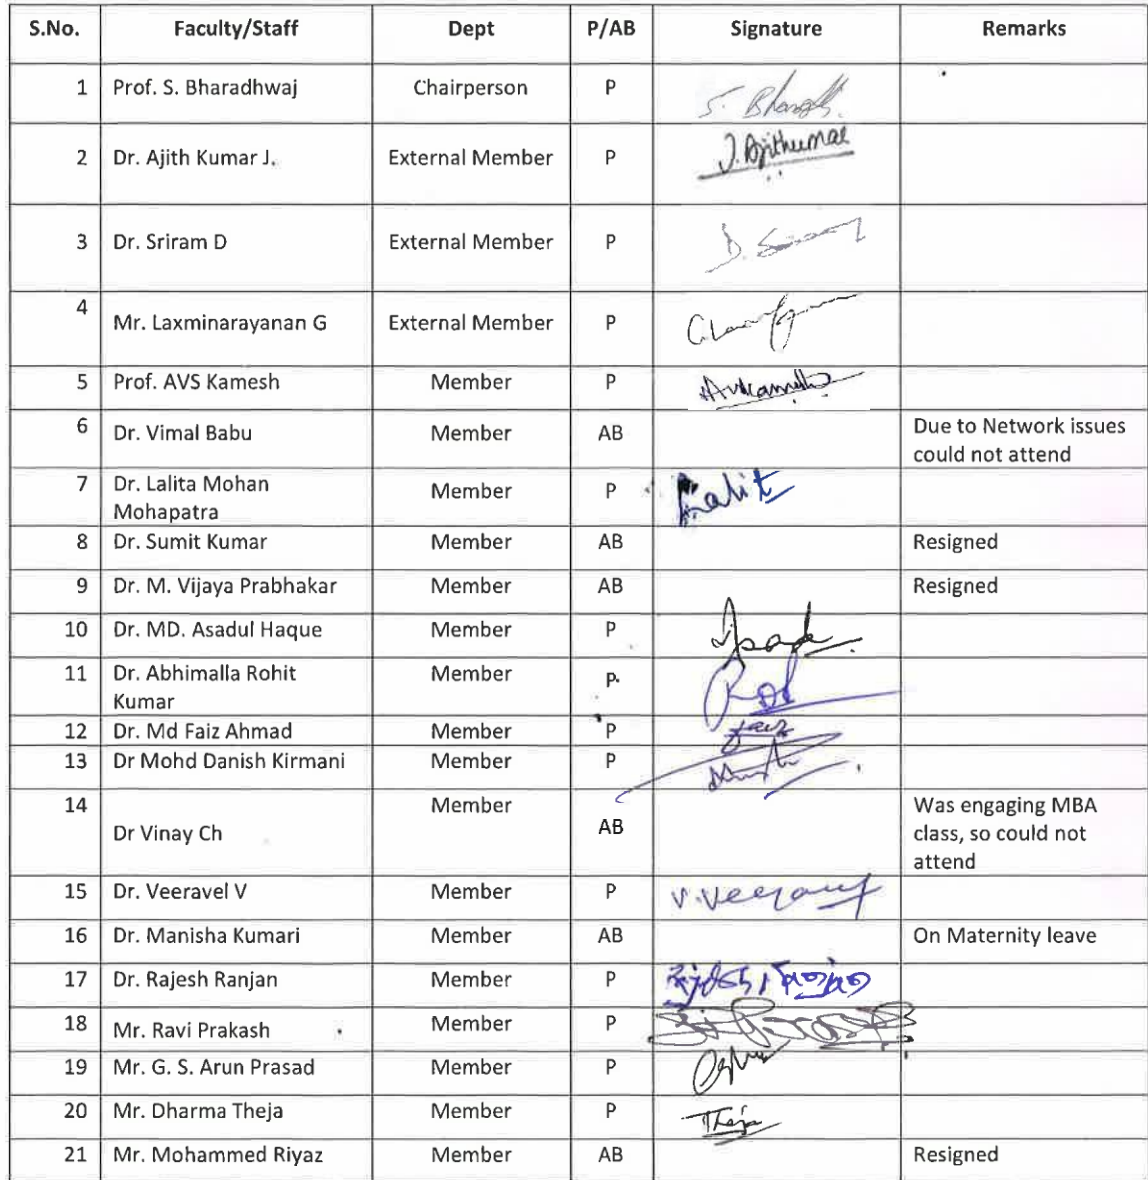 S.No. Faculty/Staff Dept P/AB Signature Remarks
1 Prof. S. Bharadhwaj Chairperson P S. Bharadh.
2 Dr. Ajith Kumar J. External Member P J. Ajithkumar
3 Dr. Sriram D External Member P
4 Mr. Laxminarayanan G External Member P
5 Prof. AVS Kamesh Member P
6 Dr. Vimal Babu Member AB Due to Network issues
could not attend
7 Dr. Lalita Mohan Member P Lalit
Mohapatra
8 Dr. Sumit Kumar Member AB Resigned
9 Dr. M. Vijaya Prabhakar Member AB Resigned
10 Dr. MD. Asadul Haque Member P
11 Dr. Abhimalla Rohit Member P
Kumar
12 Dr. Md Faiz Ahmad Member P faiz
13 Dr Mohd Danish Kirmani Member P
14 Dr Vinay Ch Member AB Was engaging MBA
class, so could not
attend
15 Dr. Veeravel V Member P
16 Dr. Manisha Kumari Member AB On Maternity leave
17 Dr. Rajesh Ranjan Member P
18 Mr. Ravi Prakash Member P
19 Mr. G. S. Arun Prasad Member P
20 Mr. Dharma Theja Member P Theja
21 Mr. Mohammed Riyaz Member AB Resigned